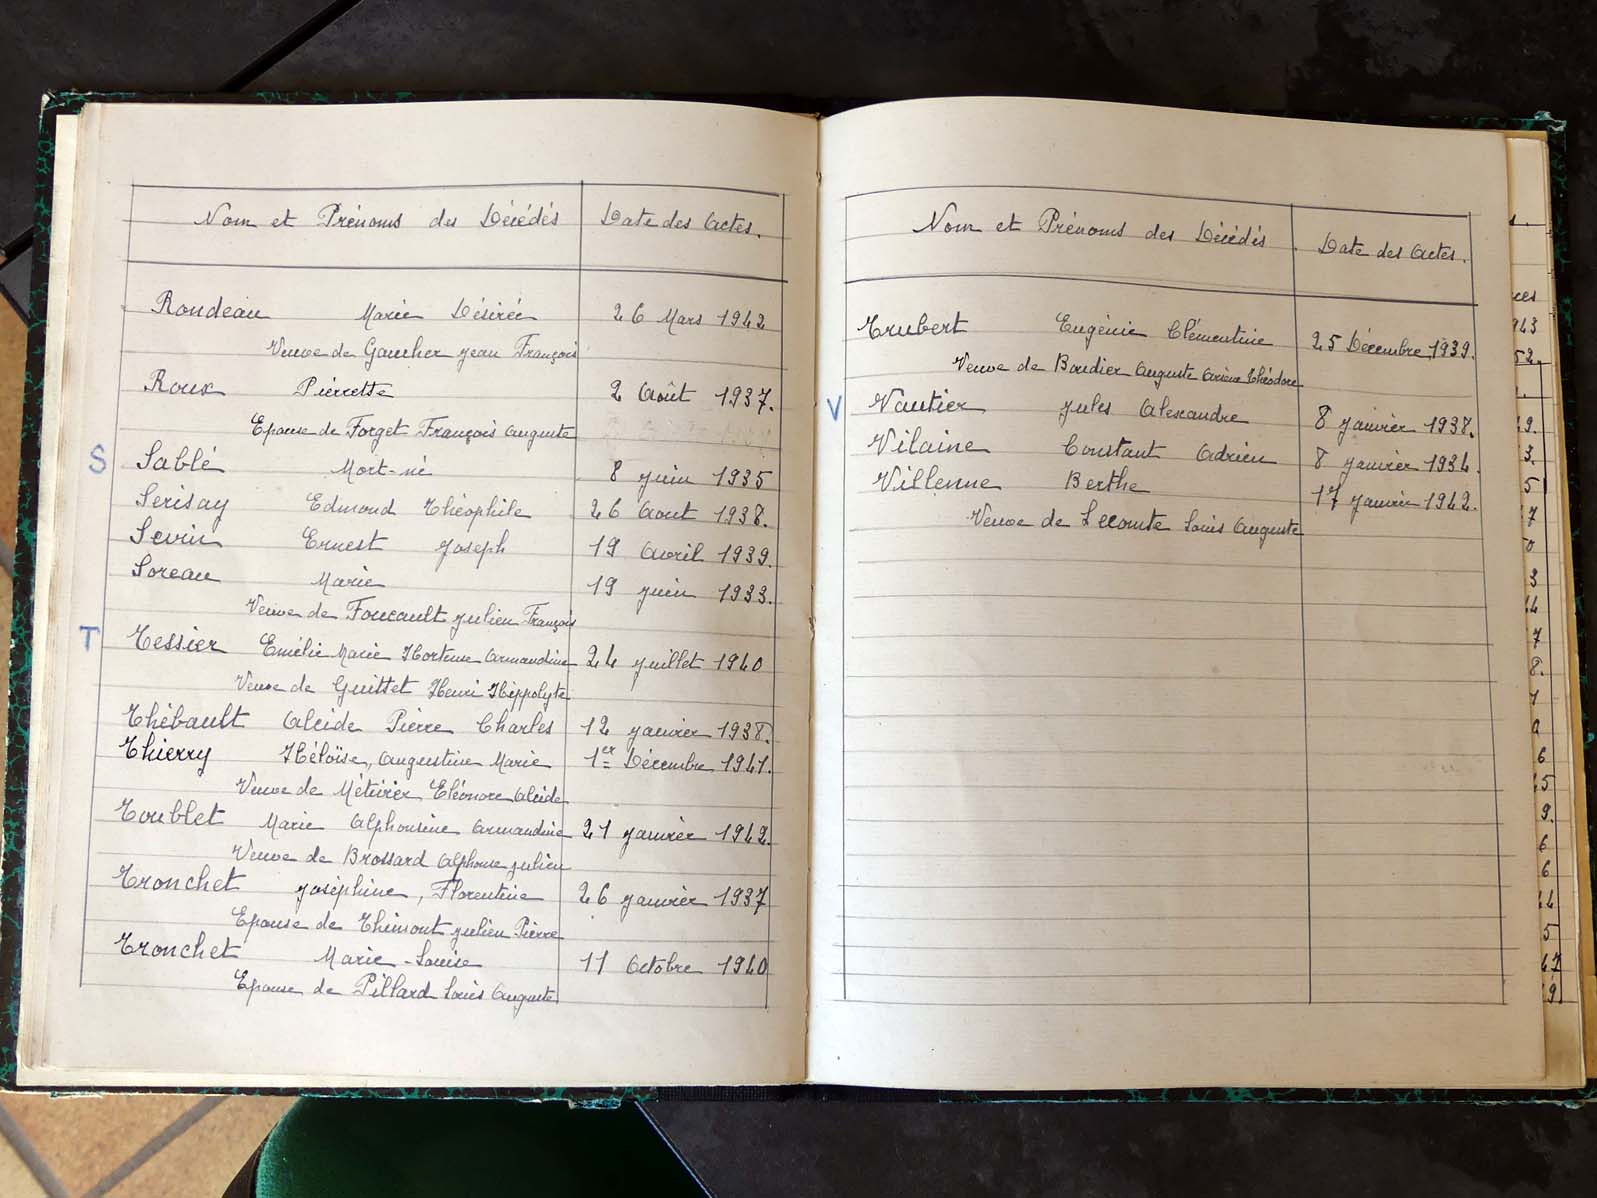 Nom et Prénoms des Décédés Date des Actes.
Rondeau Marie Désirée 26 Mars 1942
Veuve de Gaucher Jean François
Roux Pierrette 2 Août 1937.
Epouse de Forget François Auguste
S Sablé Mort-né 8 Juin 1935
Serisay Edmond Théophile 26 Aout 1938.
Sevin Ernest Joseph 19 Avril 1939.
Soreau Marie 19 Juin 1933.
Veuve de Foucault Julien François
T Tessier Emélie Marie Hortense Armandine 24 Juillet 1940
Veuve de Guittet Henri Hippolyte
Thébault Alcide Pierre Charles 12 Janvier 1938.
Thierry Héloïse, Augustine Marie 1er Décembre 1941.
Veuve de Métivier Eléonore Alcide
Toublet Marie Alphonsine Armandine 21 Janvier 1942.
Veuve de Brossard Alphonse Julien
Tronchet Joséphine, Florentine 26 Janvier 1937
Epouse de Thimont Julien Pierre
Tronchet Marie-Louise 11 Octobre 1940
Epouse de Pillard Louis Auguste
Nom et Prénoms des Décédés Date des Actes.
Trubert Eugénie Clémentine 25 Décembre 1939.
Veuve de Boudier Auguste Théodore
V Vautier Jules Alexandre 8 Janvier 1938.
Vilaine Constant Adrien 8 Janvier 1934.
Villenne Berthe 17 Janvier 1942.
Veuve de Lecomte Louis Auguste